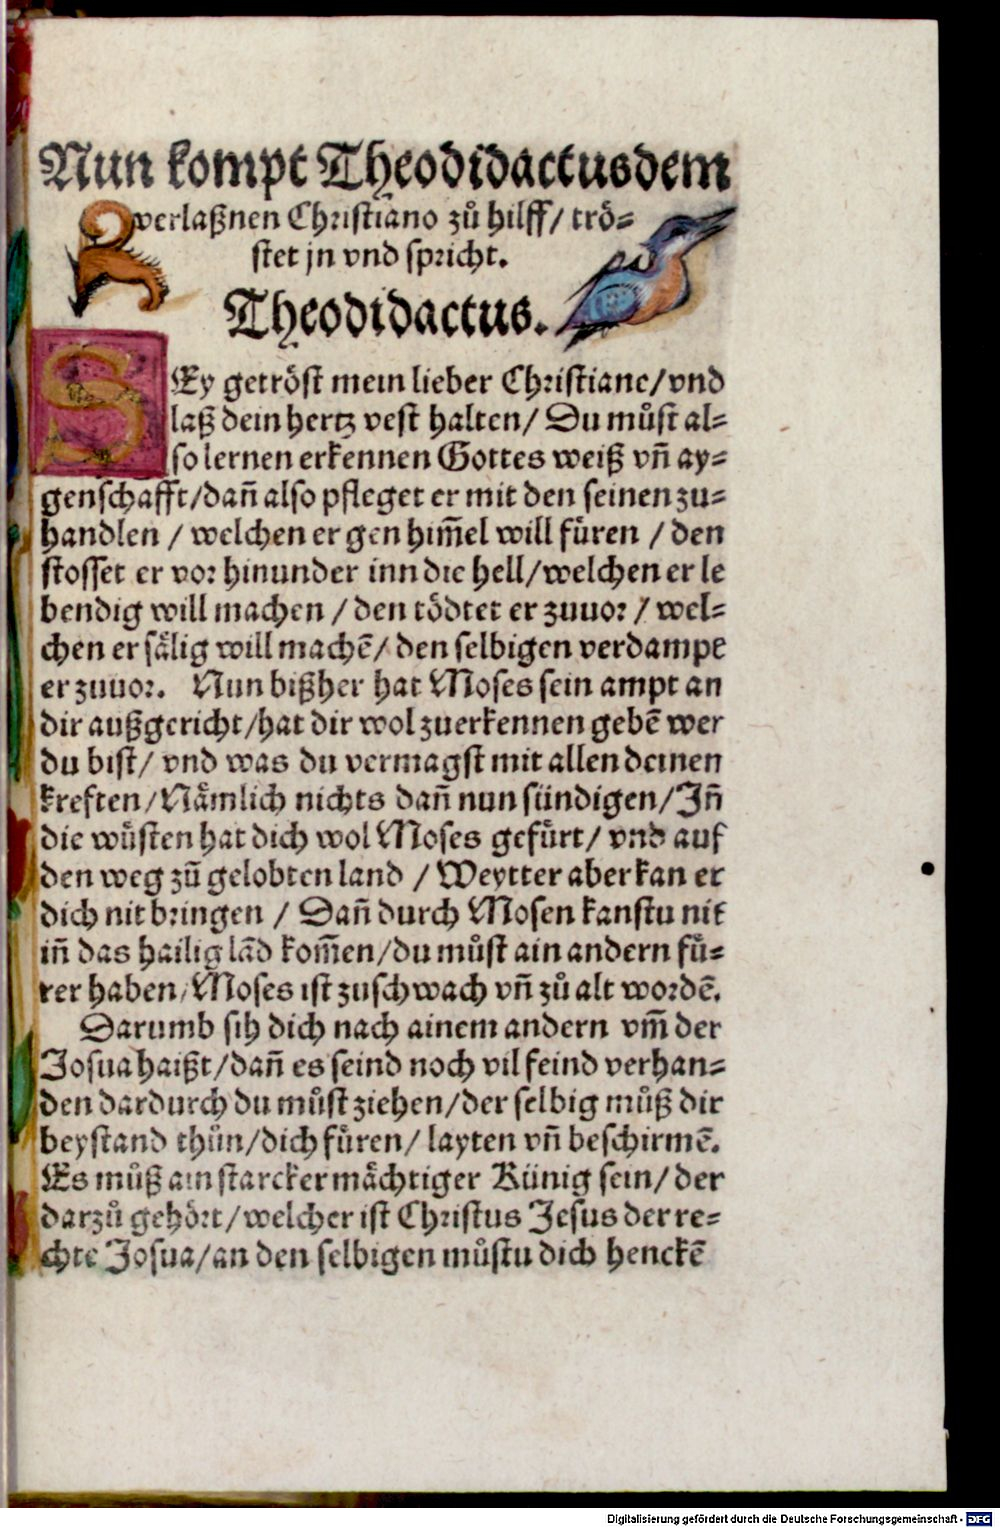 Nun kompt Theodidactus dem
verlaßnen Christiano zů hilff/ trö⸗
stet jn vnd spricht.
Theodidactus.
SEy getröst mein lieber Christiane/ vnd
laß dein hertz vest halten/ Du můst al⸗
so lernen erkennen Gottes weiß vñ ay⸗
genschafft/ dañ also pfleget er mit den seinen zu⸗
handlen / welchen er gen him̃el will füren / den
stosset er vor hinunder inn die hell/ welchen er le
bendig will machen / den tödtet er zuuor / wel⸗
chen er sälig will machē/ den selbigen verdampt
er zuuor. Nun bißher hat Moses sein ampt an
dir außgericht/ hat dir wol zuerkennen gebē wer
du bist/ vnd was du vermagst mit allen deinen
kreften/ Nämlich nichts dañ nun sündigen/ Jñ
die wůsten hat dich wol Moses gefürt/ vnd auf
den weg zů gelobten land / Weytter aber kan er
dich nit bringen / Dañ durch Mosen kanstu nit
iñ das hailig lād kom̃en/ du můst ain andern fü⸗
rer haben/ Moses ist zuschwach vñ zů alt wordē.
Darumb sih dich nach ainem andern vm̃ der
Josua haißt/ dañ es seind noch vil feind verhan⸗
den dardurch du můst ziehen/ der selbig můß dir
beystand thůn/ dich füren/ layten vñ beschirmē.
Es můß ain starcker mächtiger Künig sein/ der
darzů gehört/ welcher ist Christus Jesus der re⸗
chte Josua/ an den selbigen můstu dich henckē
Digitalisierung gefördert durch die Deutsche Forschungsgemeinschaft - DFG